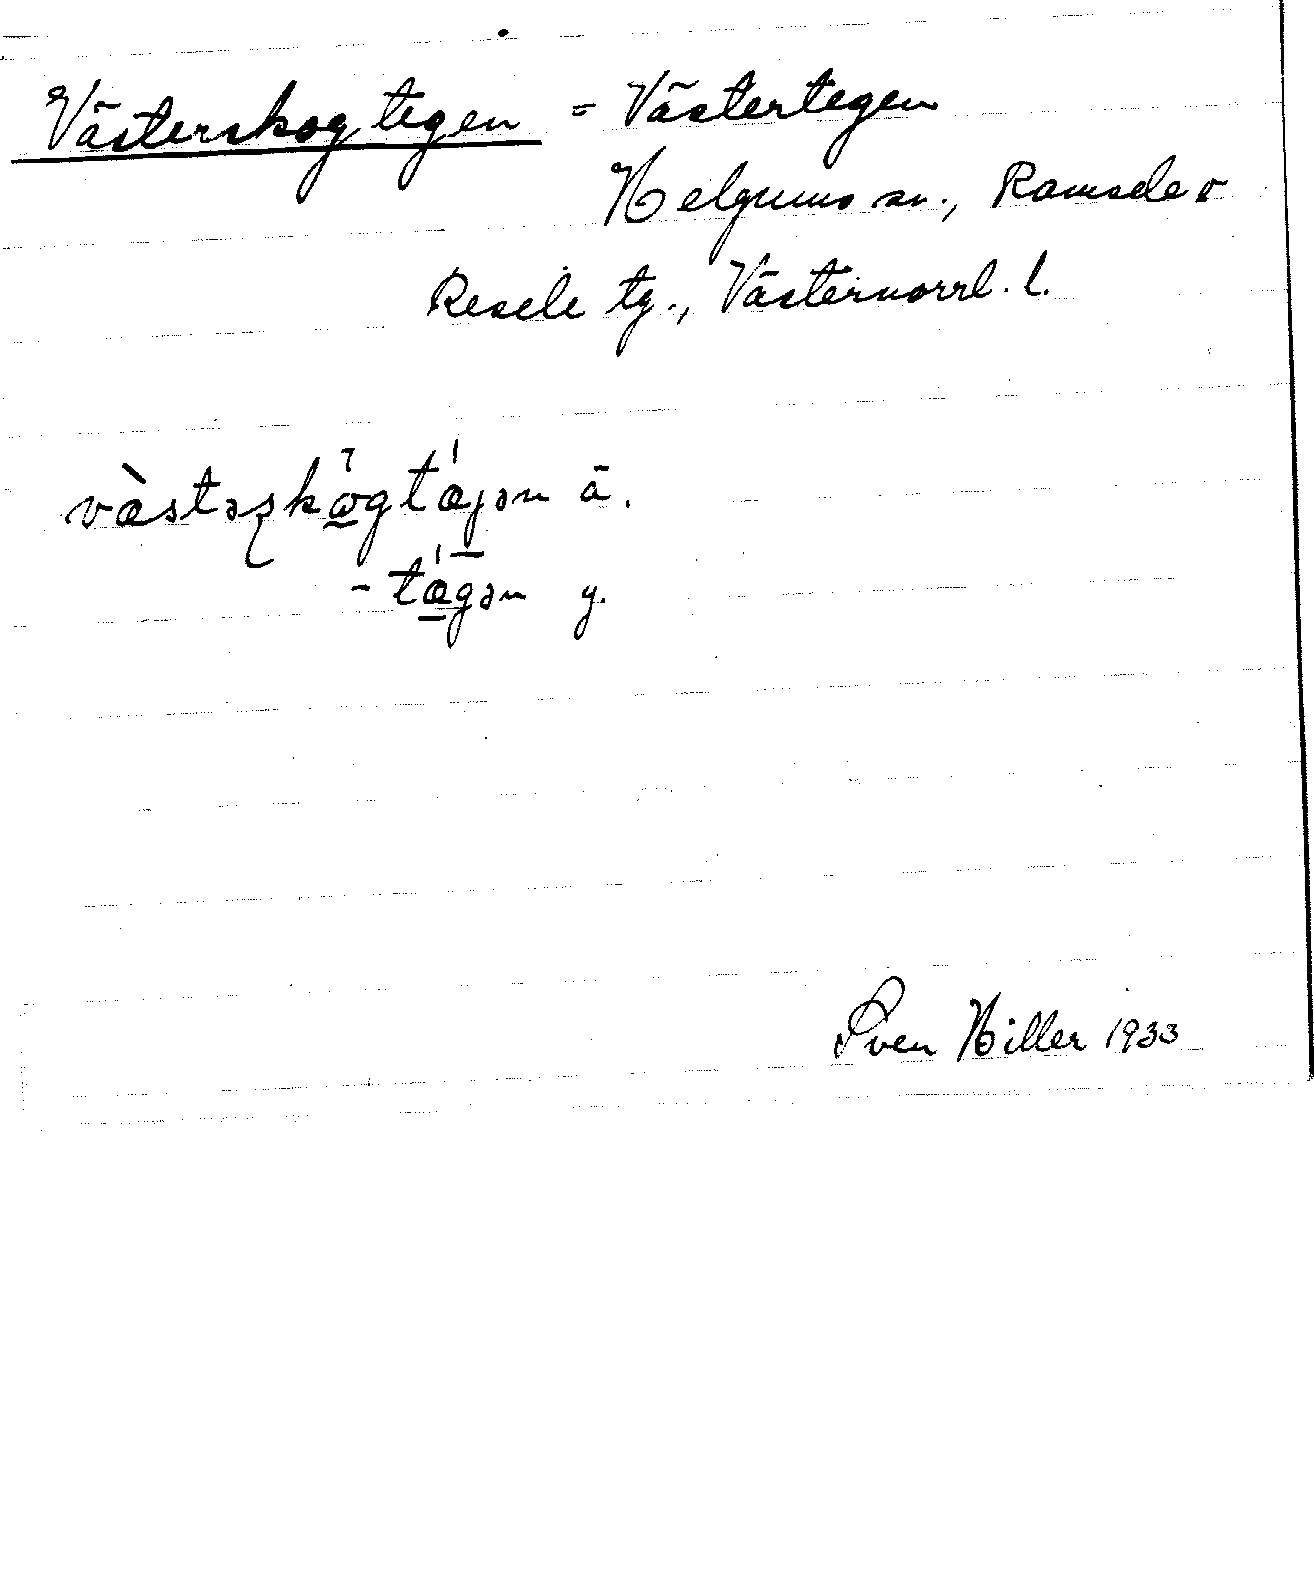 Västerskogtegen = Västertegen
Helgums sn., Ramsele o
Resele tg., Västernorrl. l.
vàstəʂkògtájən ä.
- tágən y.
Sven Hiller 1933